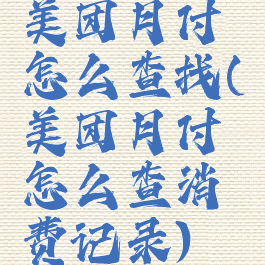 美团月付
怎么查找(
美团月付
怎么查消
费记录)